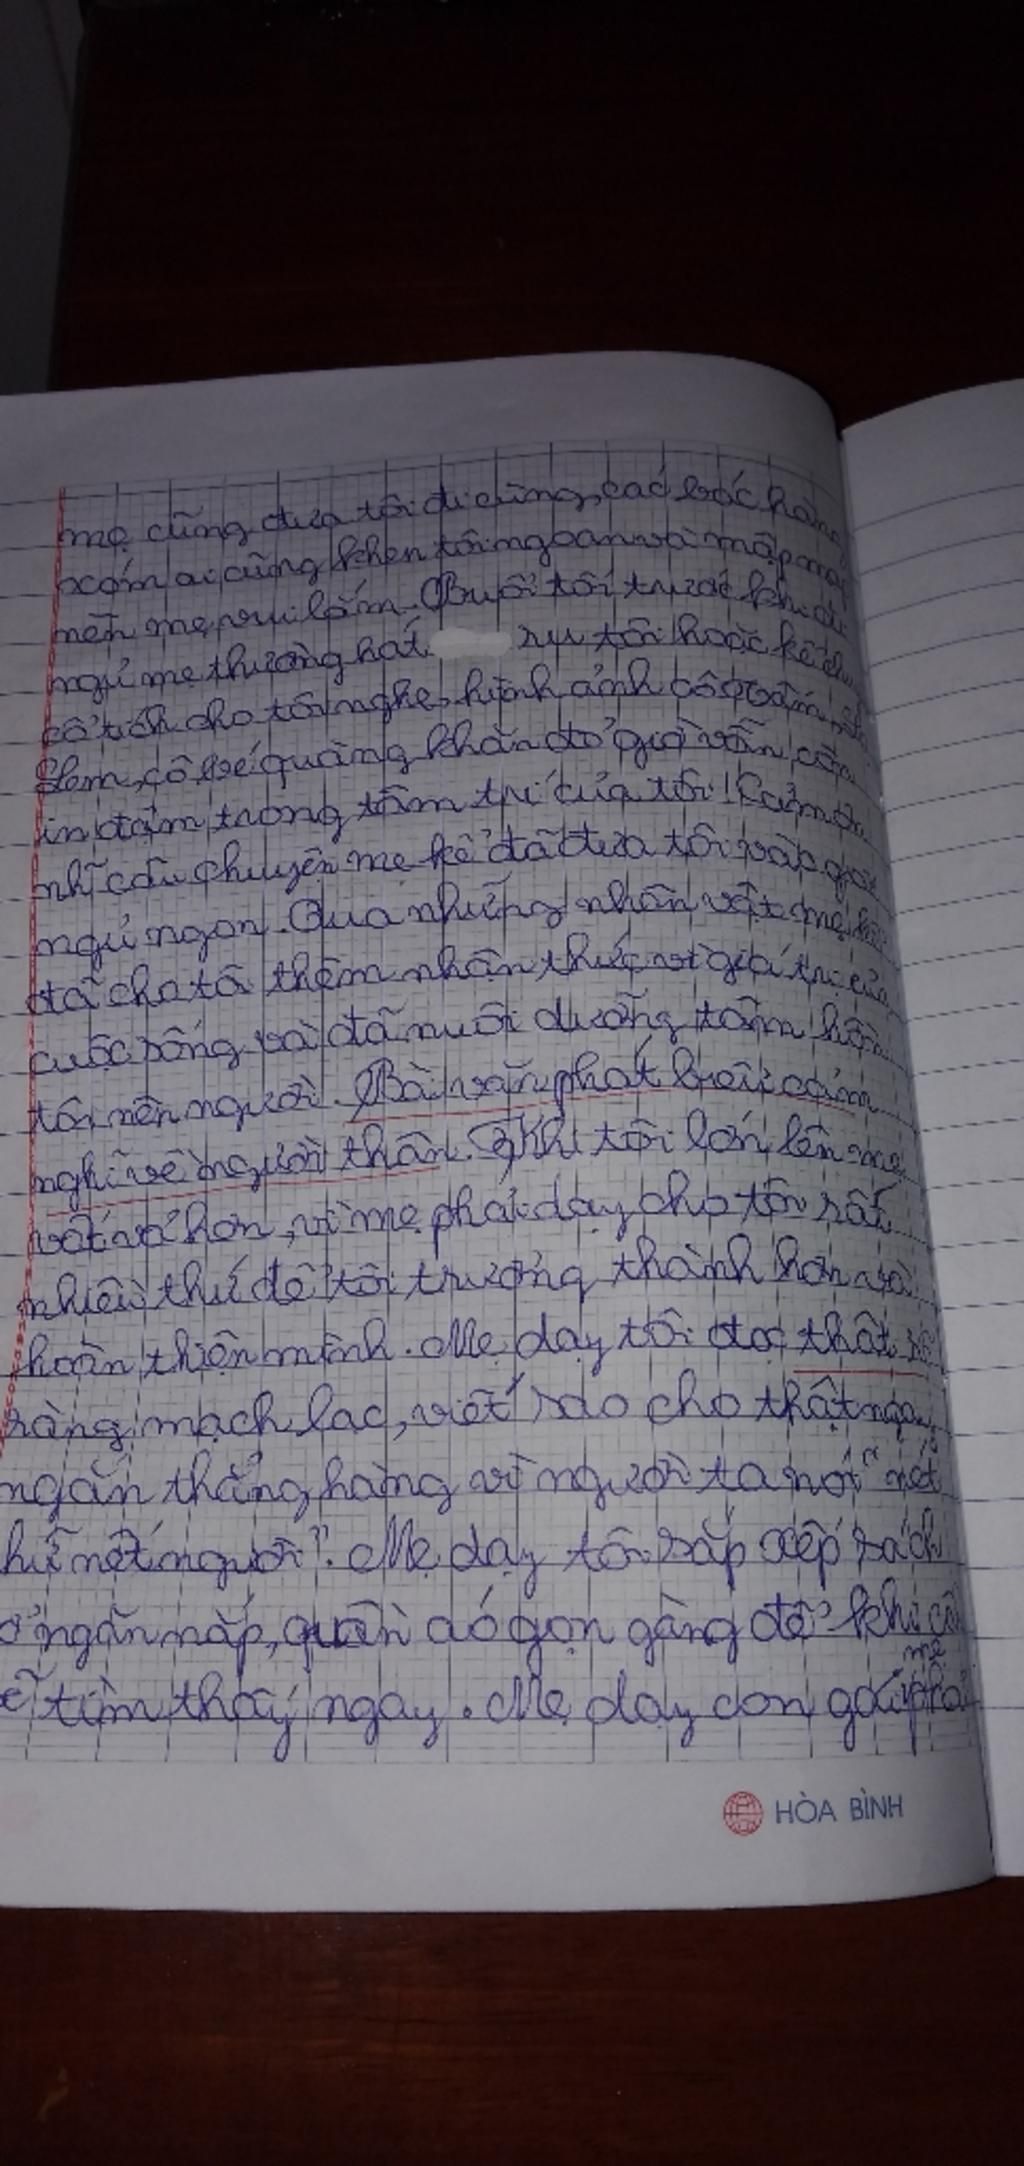 mẹ cũng đưa tôi đi cùng, các bác hàng
xóm ai cũng khen tôi ngoan và mập mạp
nên mẹ vui lắm. Buổi tối trước khi đi
ngủ mẹ thường hát ru tôi hoặc kể
cổ tích cho tôi nghe, hình ảnh cô Tấm,
Lem, cô bé quàng khăn đỏ giờ vẫn còn
in đậm trong tâm trí của tôi!
câu chuyện mẹ kể đã đưa tôi vào giấc
ngủ ngon. Qua những nhân vật mẹ kể
đã cho tô thêm nhận thức về giá trị của
cuộc sống và đã nuôi dưỡng tâm hồn
tôi nên người. Bài văn phát biểu cảm
nghĩ về người thân. Khi tôi lớn lên mẹ
vất vả hơn, vì mẹ phải dạy cho tôi rất
nhiều thứ để tôi trưởng thành hơn và
hoàn thiện mình. Mẹ dạy tôi đọc thật rõ
ràng mạch lạc, viết sao cho thật ngay
ngắn thẳng hàng vì người ta nói "nét
hữ nết người". Mẹ dạy tôi sắp xếp sách
ở ngăn nắp, quần áo gọn gàng để khi cần
ễ tìm thấy ngay. Mẹ dạy con gái mẹ phải
HÒA BÌNH